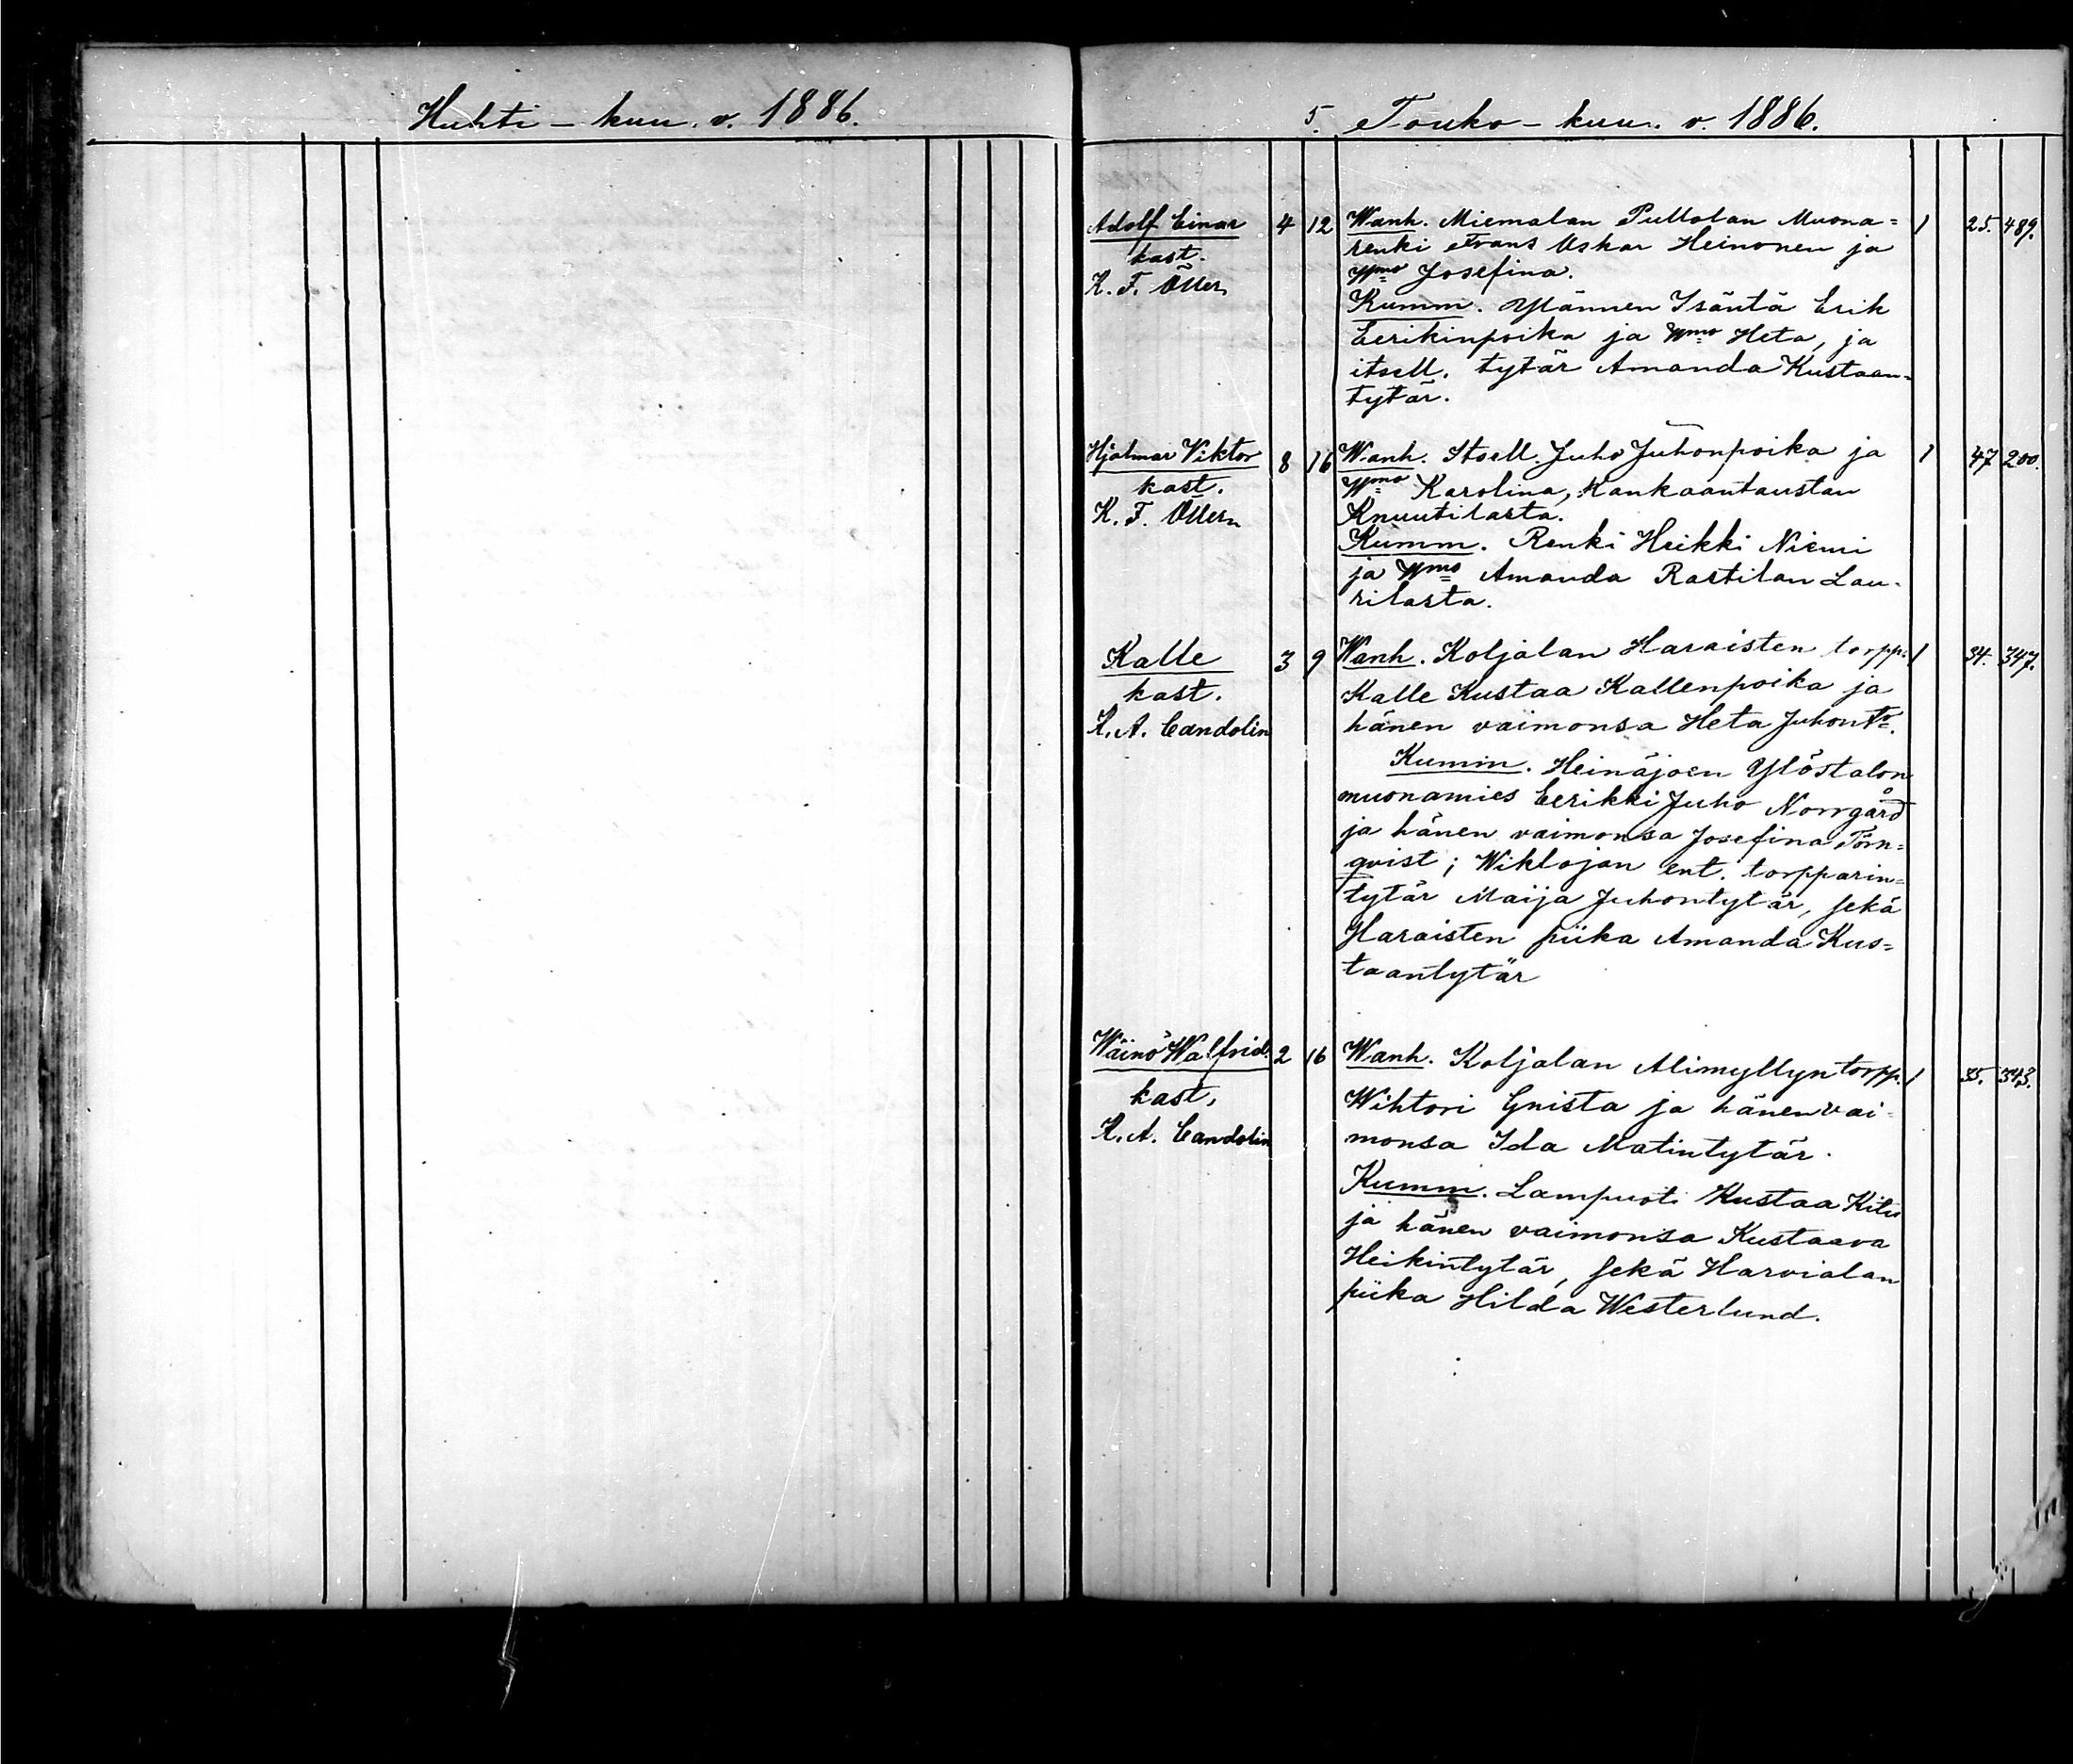 Huhti - kuu. v. 1886.
5. Touko - kuu. v. 1886.
Adolf Einar 4 12 Wanh. Miemalan Pullolan Muona=
renki Frans Oskar Heinonen ja
kast.
Wmo Josefina.
K. F. Öller
Kumm. Ylännen Isäntä Erik
Eerikinpoika ja Wmo Heta, ja
itsell. tytär Amanda Kustaan=
tytär.
1 25. 489.
Hjalmar Viktor 8 16 Wanh. Itsell. Juho Juhonpoika ja
kast.
Wmo Karolina, Kankaantaustan
K. F. Öller
Knuutilasta.
Kumm. Renki Heikki Niemi
ja Wmo Amanda Rastilan Lau-
rilasta.
1 47 200.
Kalle 3 9 Wanh. Koljalan Haraisten torpp.
kast.
Kalle Kustaa Kallenpoika ja
K. A. Candolin
hänen vaimonsa Heta Juhontr.
Kumm. Heinäjoen Ylöstalon
muonamies Eerikki Juho Norrgård
ja hänen vaimonsa Josefina Törn=
qvist; Wiklojan ent. torpparin=
tytär Maija Juhontytär, sekä
Haraisten piika Amanda Kus=
taantytär
1 34. 347.
Wäinö Walfrid. 2 16 Wanh. Koljalan Alimyllyn torpp.
kast,
Wihtori Gnista ja hänen vai-
K. A. Candolin
monsa Ida Matintytär.
Kumm. Lampuoti Kustaa Kitu
ja hänen vaimonsa Kustaava
Heikintytär, sekä Harvialan
piika Hilda Westerlund.
1 35. 343.